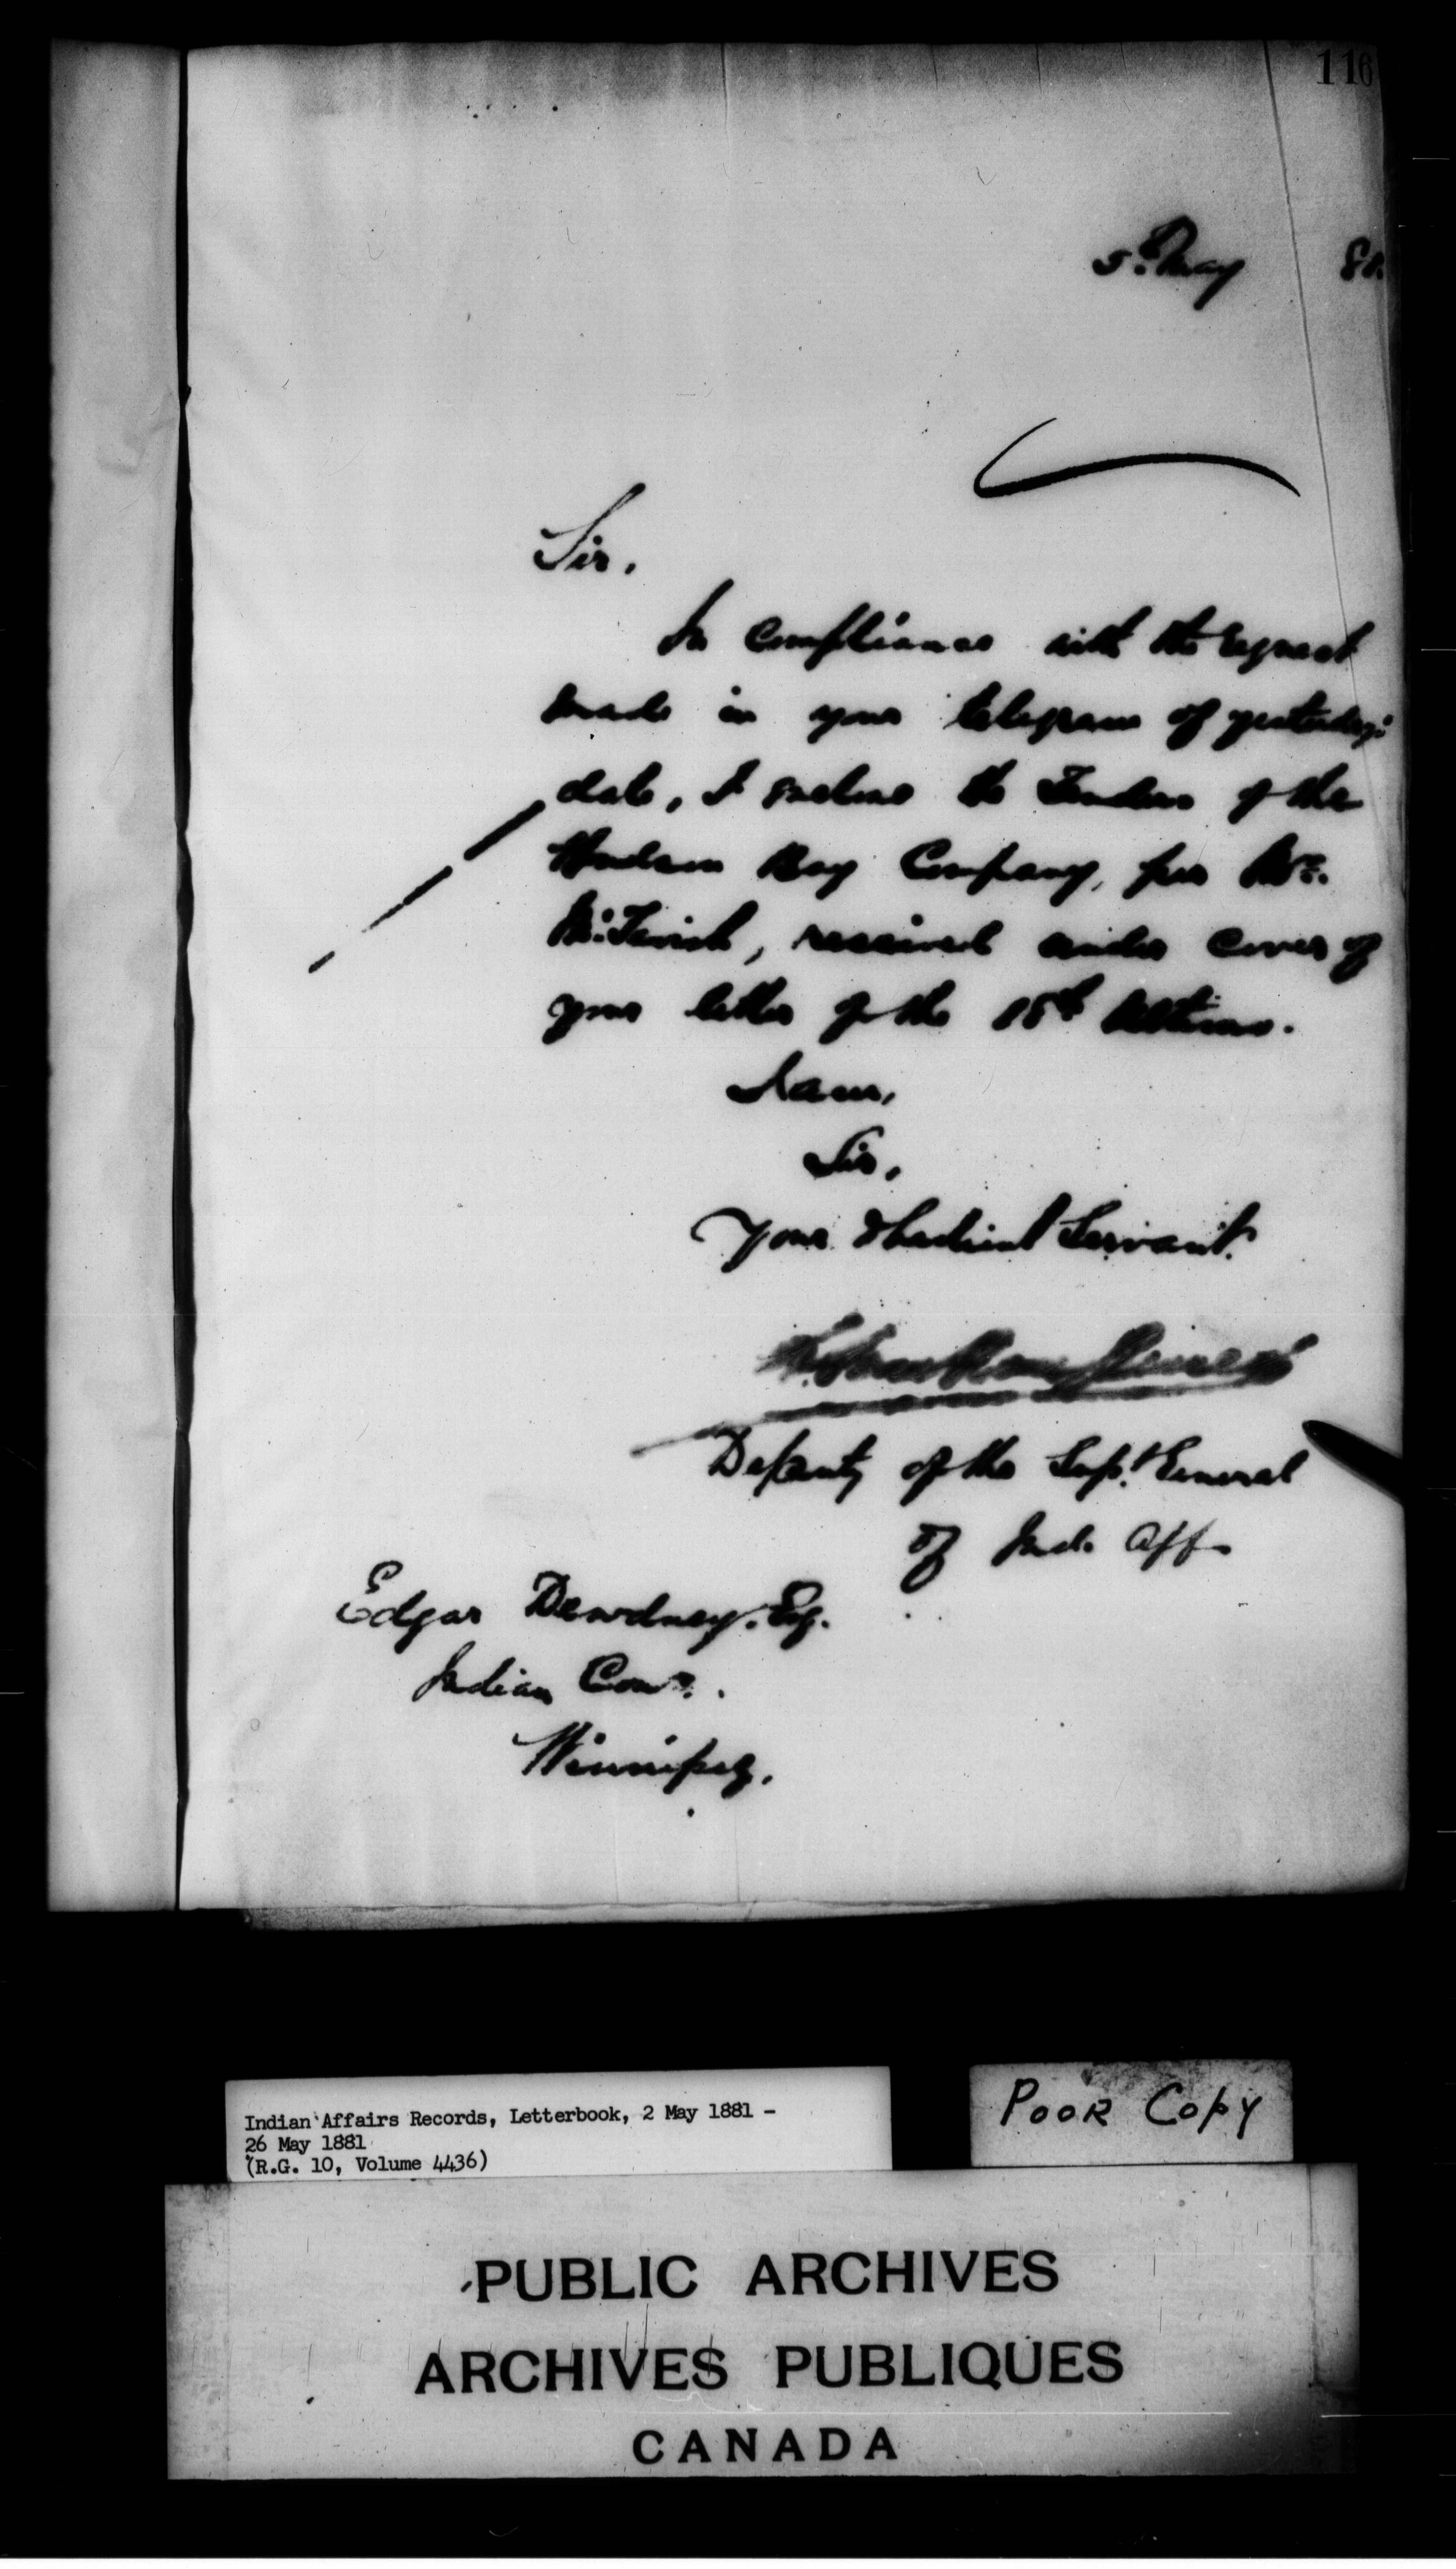 116
5th May 81.
Sir,
In compliance with the request
made in your telegram of yesterday's
date, I enclose the Tenders of the
Hudson Bay Company, per Mr.
McTavish, received under cover of
your letter of the 18th Ultimo.
I am,
Sir,
Your Obedient Servant.
Deputy of the Supt. General
of Ind. Aff.
Edgar Dewdney. Esq.
Indian Comr.
Winnipeg.
Indian Affairs Records, Letterbook, 2 May 1881 -
26 May 1881
(R.G. 10, Volume 4436)
POOR COPY
PUBLIC ARCHIVES
ARCHIVES PUBLIQUES
CANADA